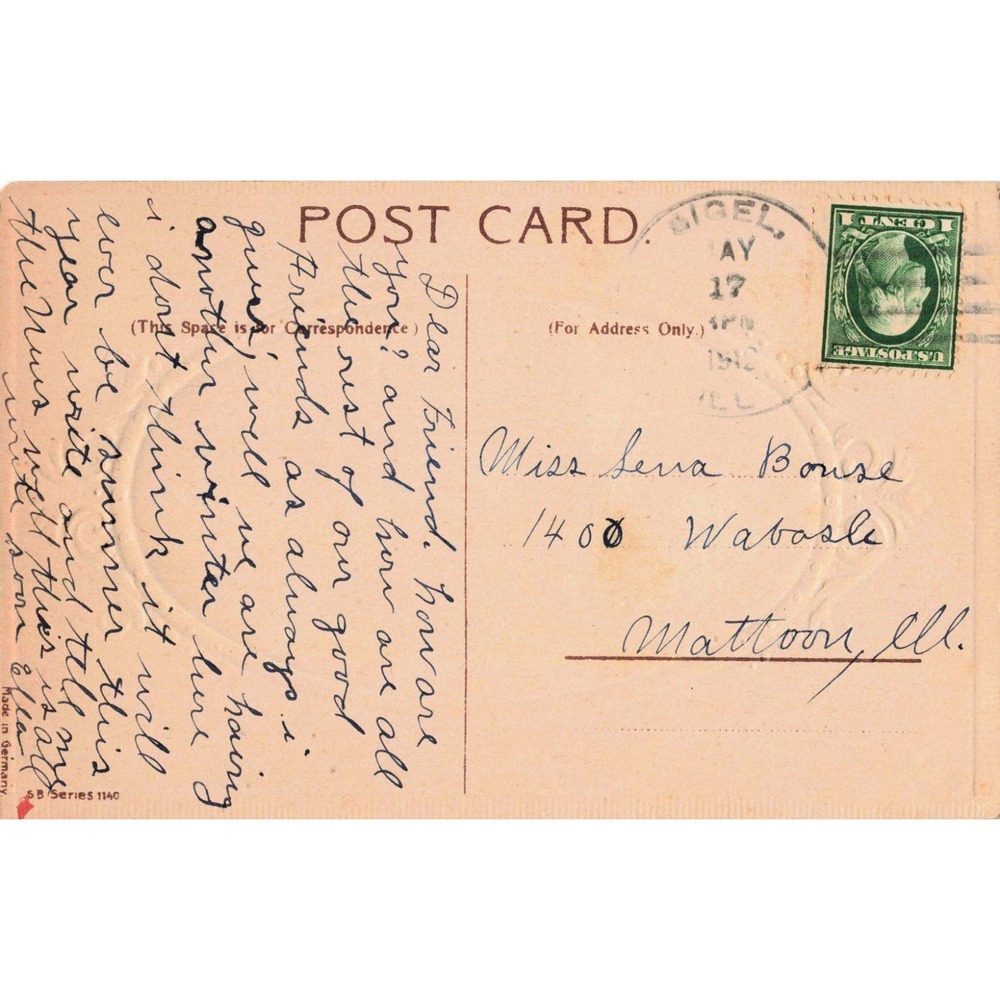 POST CARD.
(This Space is for Correspondence)
(For Address Only.)
SIGEL,
MAY
17
3PM
1912
ILL
1 CENT 1
U.S.POSTAGE
Dear Friend. how are
you? and how are all
the rest of our good
Friends as always i
gues, well we are having
another winter here
i dont think it will
ever be summer this
year write and tell me
the News well this is all
write soon Ella
Miss Lena Bouse
1400 Wabash
Mattoon, Ill.
Made in Germany.
SB Series 1140